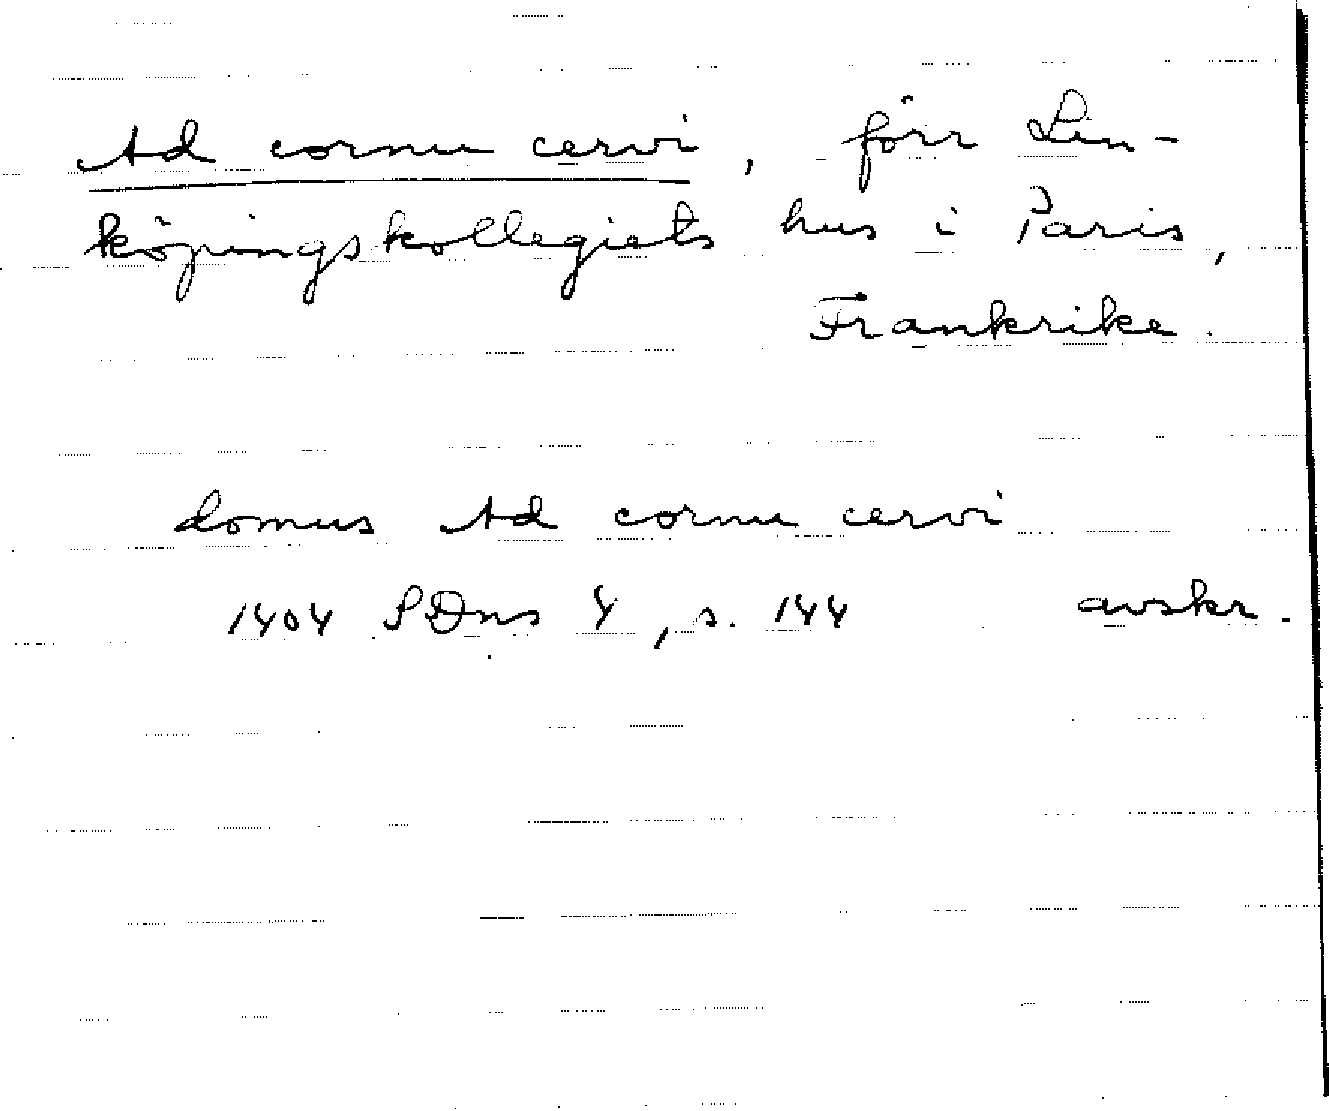 Ad cornu cervi, förr Lin-
köpingskollegiets hus i Paris,
Frankrike.
domus Ad cornu cervi
1404 SDns 4, s. 144 avskr.